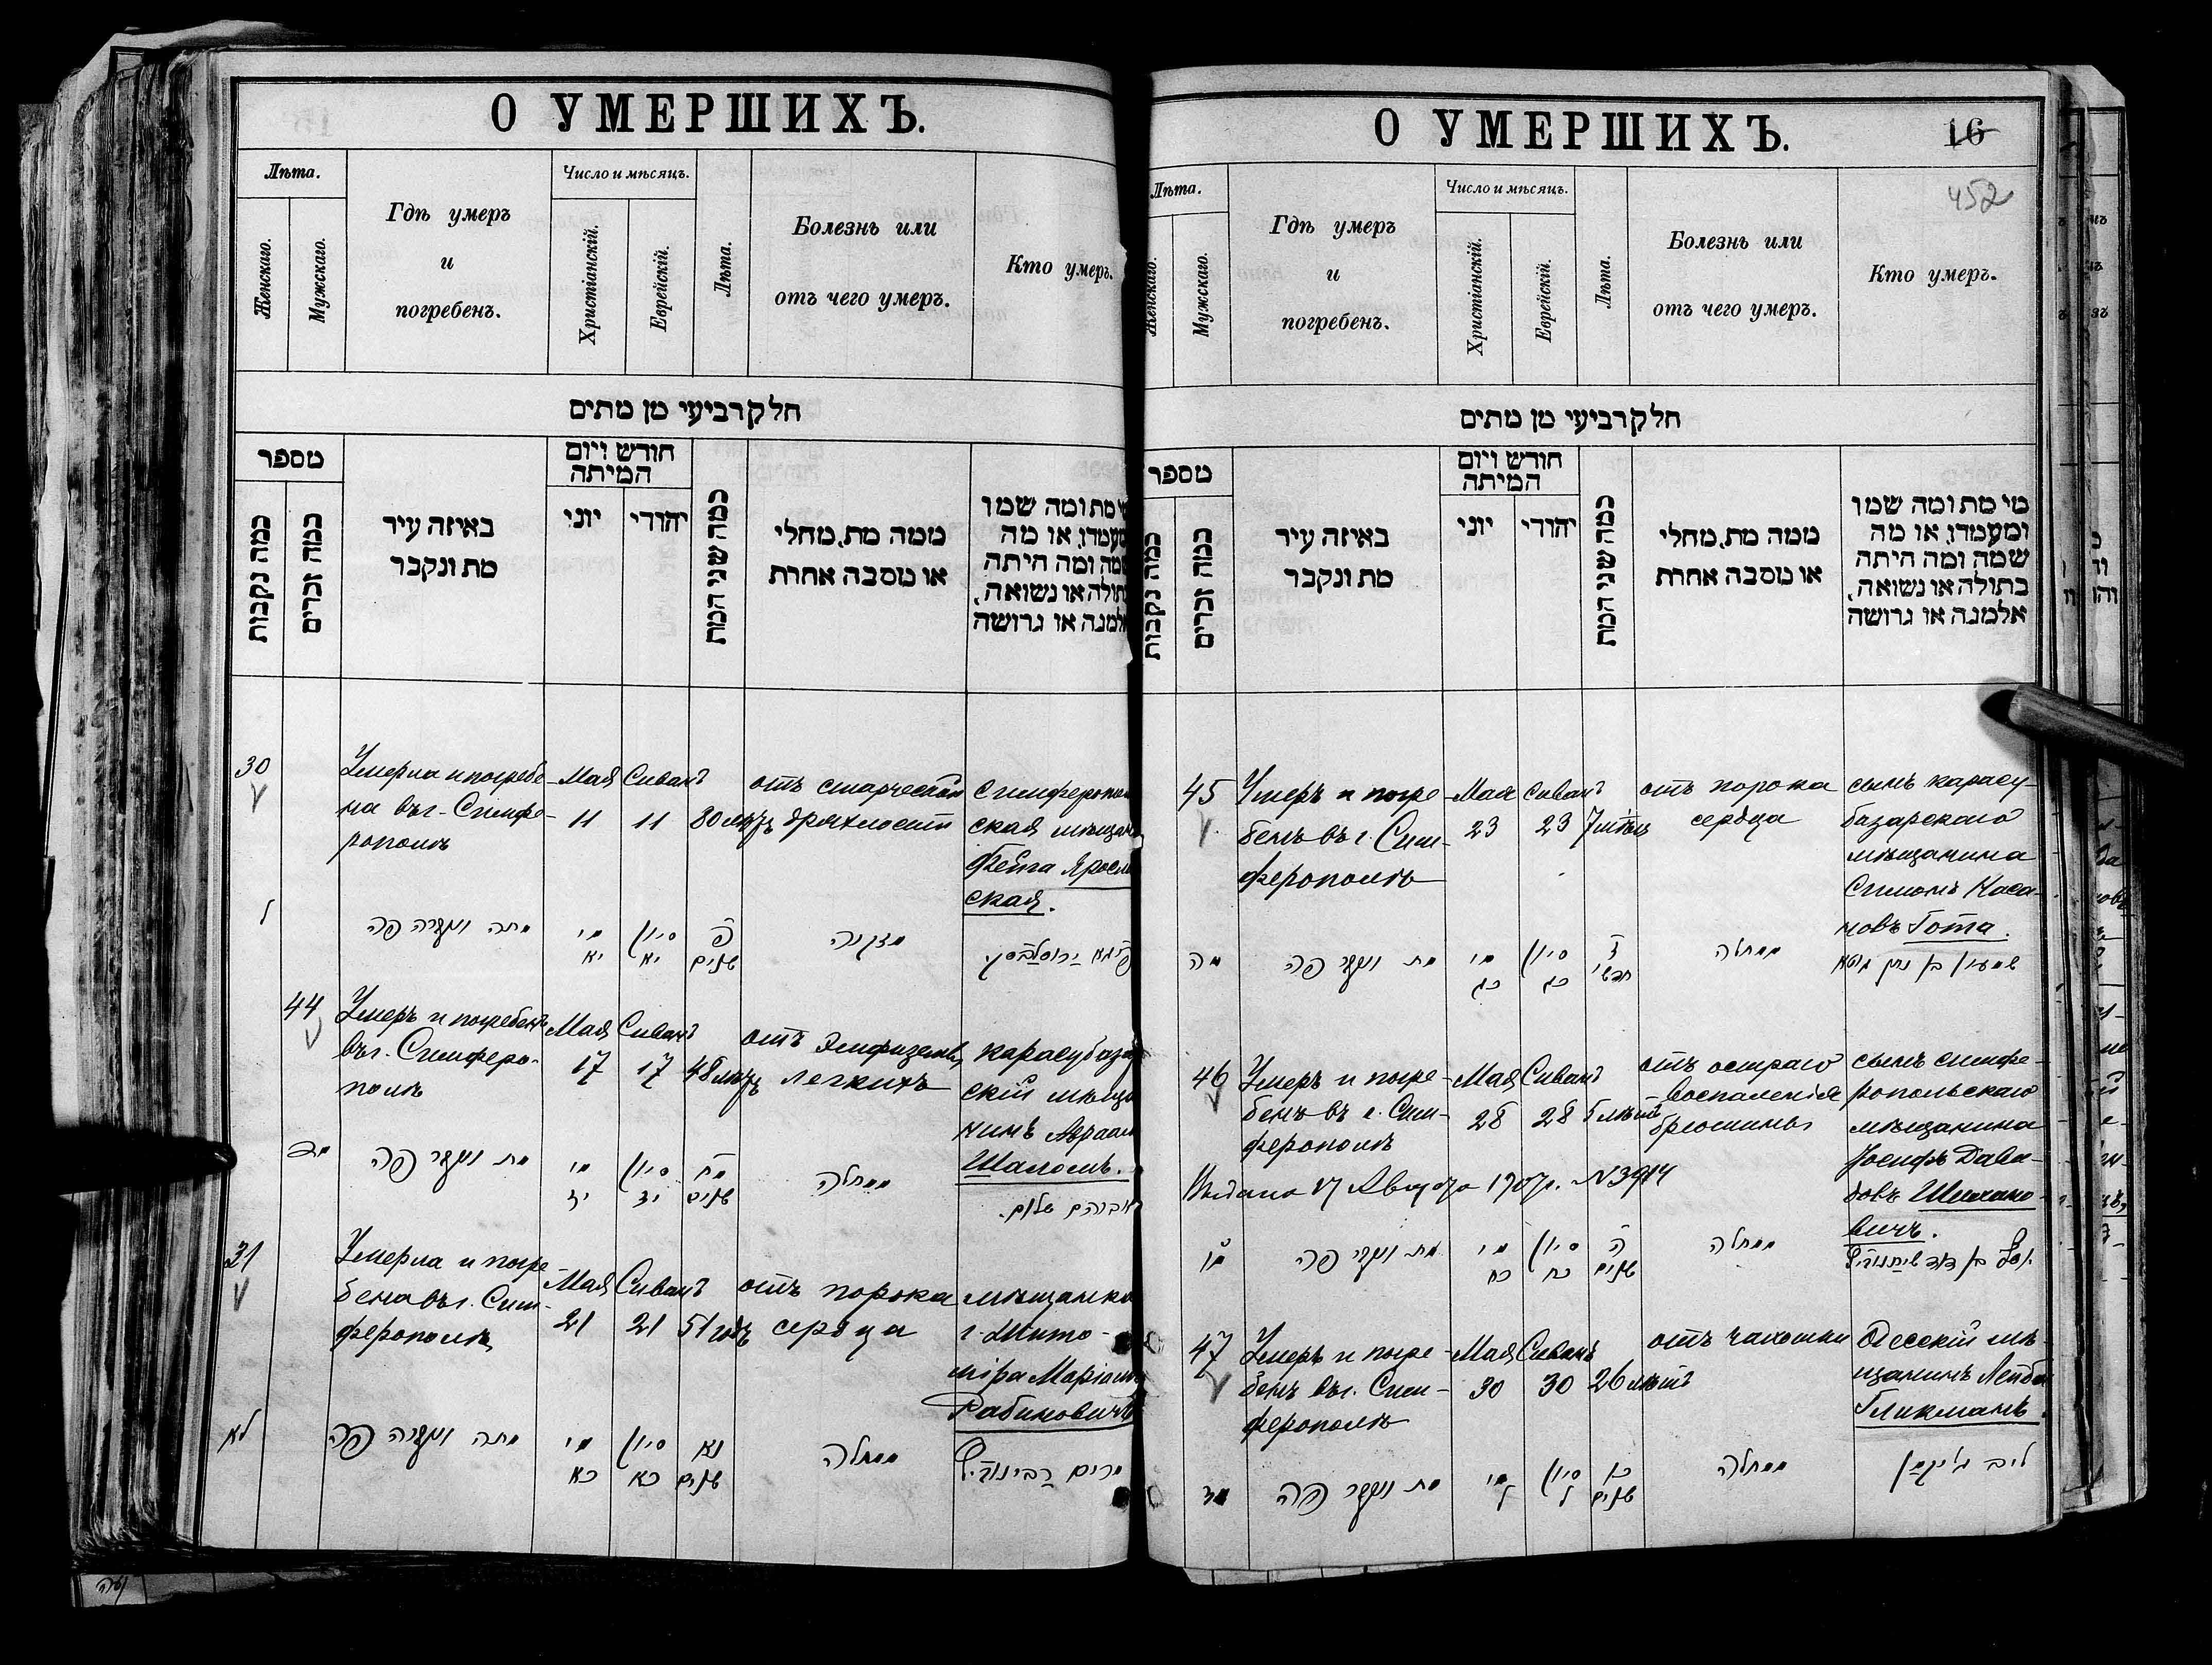 О УМЕРШИХЪ.
Лѣта.
Женскаго.
Мужскаго.
Гдѣ умеръ
и
погребенъ.
Число и мѣсяцъ.
Христіанскій.
Еврейскій.
Лѣта.
Болезнь или
отъ чего умеръ.
Кто умеръ.
חלק רביעי מן מתים
מספר
כמה נקבות
כמה זכרים
באיזה עיר
מת ונקבר
חודש ויום
המיתה
יוני
יהודי
כמה שני המת
ממה מת, מחלי
או מסבה אחרת
מי מת ומה שמו
ומעמדו, או מה
שמה ומה היתה
בתולה או נשואה,
אלמנה או גרושה
30
Умерла и погребе-
на въ г. Симфе-
рополѣ
Мая
11
Сиванъ
11
80 лѣтъ
отъ старческой
дряхлости
Симферополь
ская мѣщан
Фейга Яросла
ская.
ל
מתה ונקברה פה
מאי
יא
סיון
יא
פ
שנים
מזקנה
44
Умеръ и погребенъ
въ г. Симферо-
полѣ
Мая
17
Сиванъ
17
48 лѣтъ
отъ Эмфиземы
легкихъ
карасубаза
скій мѣща
нинъ Авраам
Шаломъ.
מד
מת ונקבר פה
מאי
יז
סיון
יז
מח
שנים
ממחלה
אברהם שלום.
31
Умерла и погре-
бена въ г. Сим-
ферополѣ
Мая
21
Сиванъ
21
51 годъ
отъ порока
сердца
мѣщанка
г. Жито-
міра Маріам
Рабиновичъ
לא
מתה ונקברה פה
מאי
כא
סיון
כא
נא
שנים
ממחלה
מרים רבינוביץ
О УМЕРШИХЪ.
16
452
Лѣта.
Женскаго.
Мужскаго.
Гдѣ умеръ
и
погребенъ.
Число и мѣсяцъ.
Христіанскій.
Еврейскій.
Лѣта.
Болезнь или
отъ чего умеръ.
Кто умеръ.
חלק רביעי מן מתים
מספר
כמה נקבות
כמה זכרים
באיזה עיר
מת ונקבר
חודש ויום
המיתה
יוני
יהודי
כמה שני המת
ממה מת, מחלי
או מסבה אחרת
מי מת ומה שמו
ומעמדו, או מה
שמה ומה היתה
בתולה או נשואה,
אלמנה או גרושה
45
Умеръ и погре-
бенъ въ г. Сим-
ферополѣ
Мая
23
Сиванъ
23
7 мѣсяц
отъ порока
сердца
сынъ карасу-
базарскаго
мѣщанина
Симонъ Насa-
новъ Гота.
מה
מת ונקבר פה
מאי
כג
סיון
כג
ז
חדשי
ממחלה
שמעון בן נתן גוטא
46
Умеръ и погре-
бенъ въ г. Сим-
ферополѣ
Мая
28
Сиванъ
28
5 лѣтъ
отъ остраго
воспаленія
брюшины
сынъ симфе-
ропольскаго
мѣщанина
Іосифъ Дави-
довъ
вичъ.
Выдано 17 Августа 1907 г. №3914
מו
מת ונקבר פה
מאי
כח
סיון
כח
ה
שנים
ממחלה
יוסף בן דוד
47
Умеръ и погре-
бенъ въ г. Сим-
ферополѣ
Мая
30
Сиванъ
30
26 лѣтъ
отъ чахотки
Одесскій мѣ-
щанинъ Лейба
Гликманъ.
מז
מת ונקבר פה
מאי
ל
סיון
ל
שנים
ממחלה
ליב גליקמן